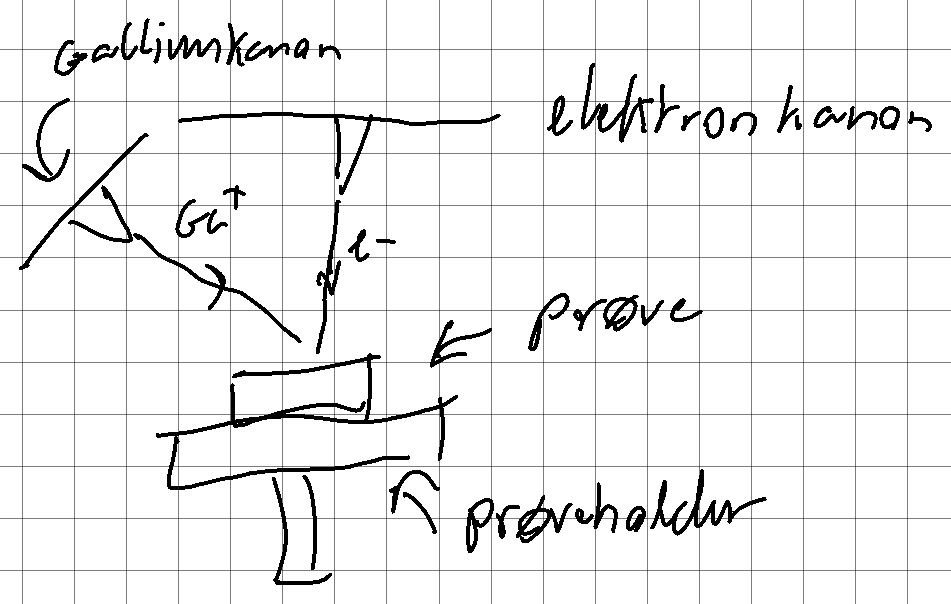 Galliumkanon
elektronkanon
Ga+
e-
prøve
prøveholder